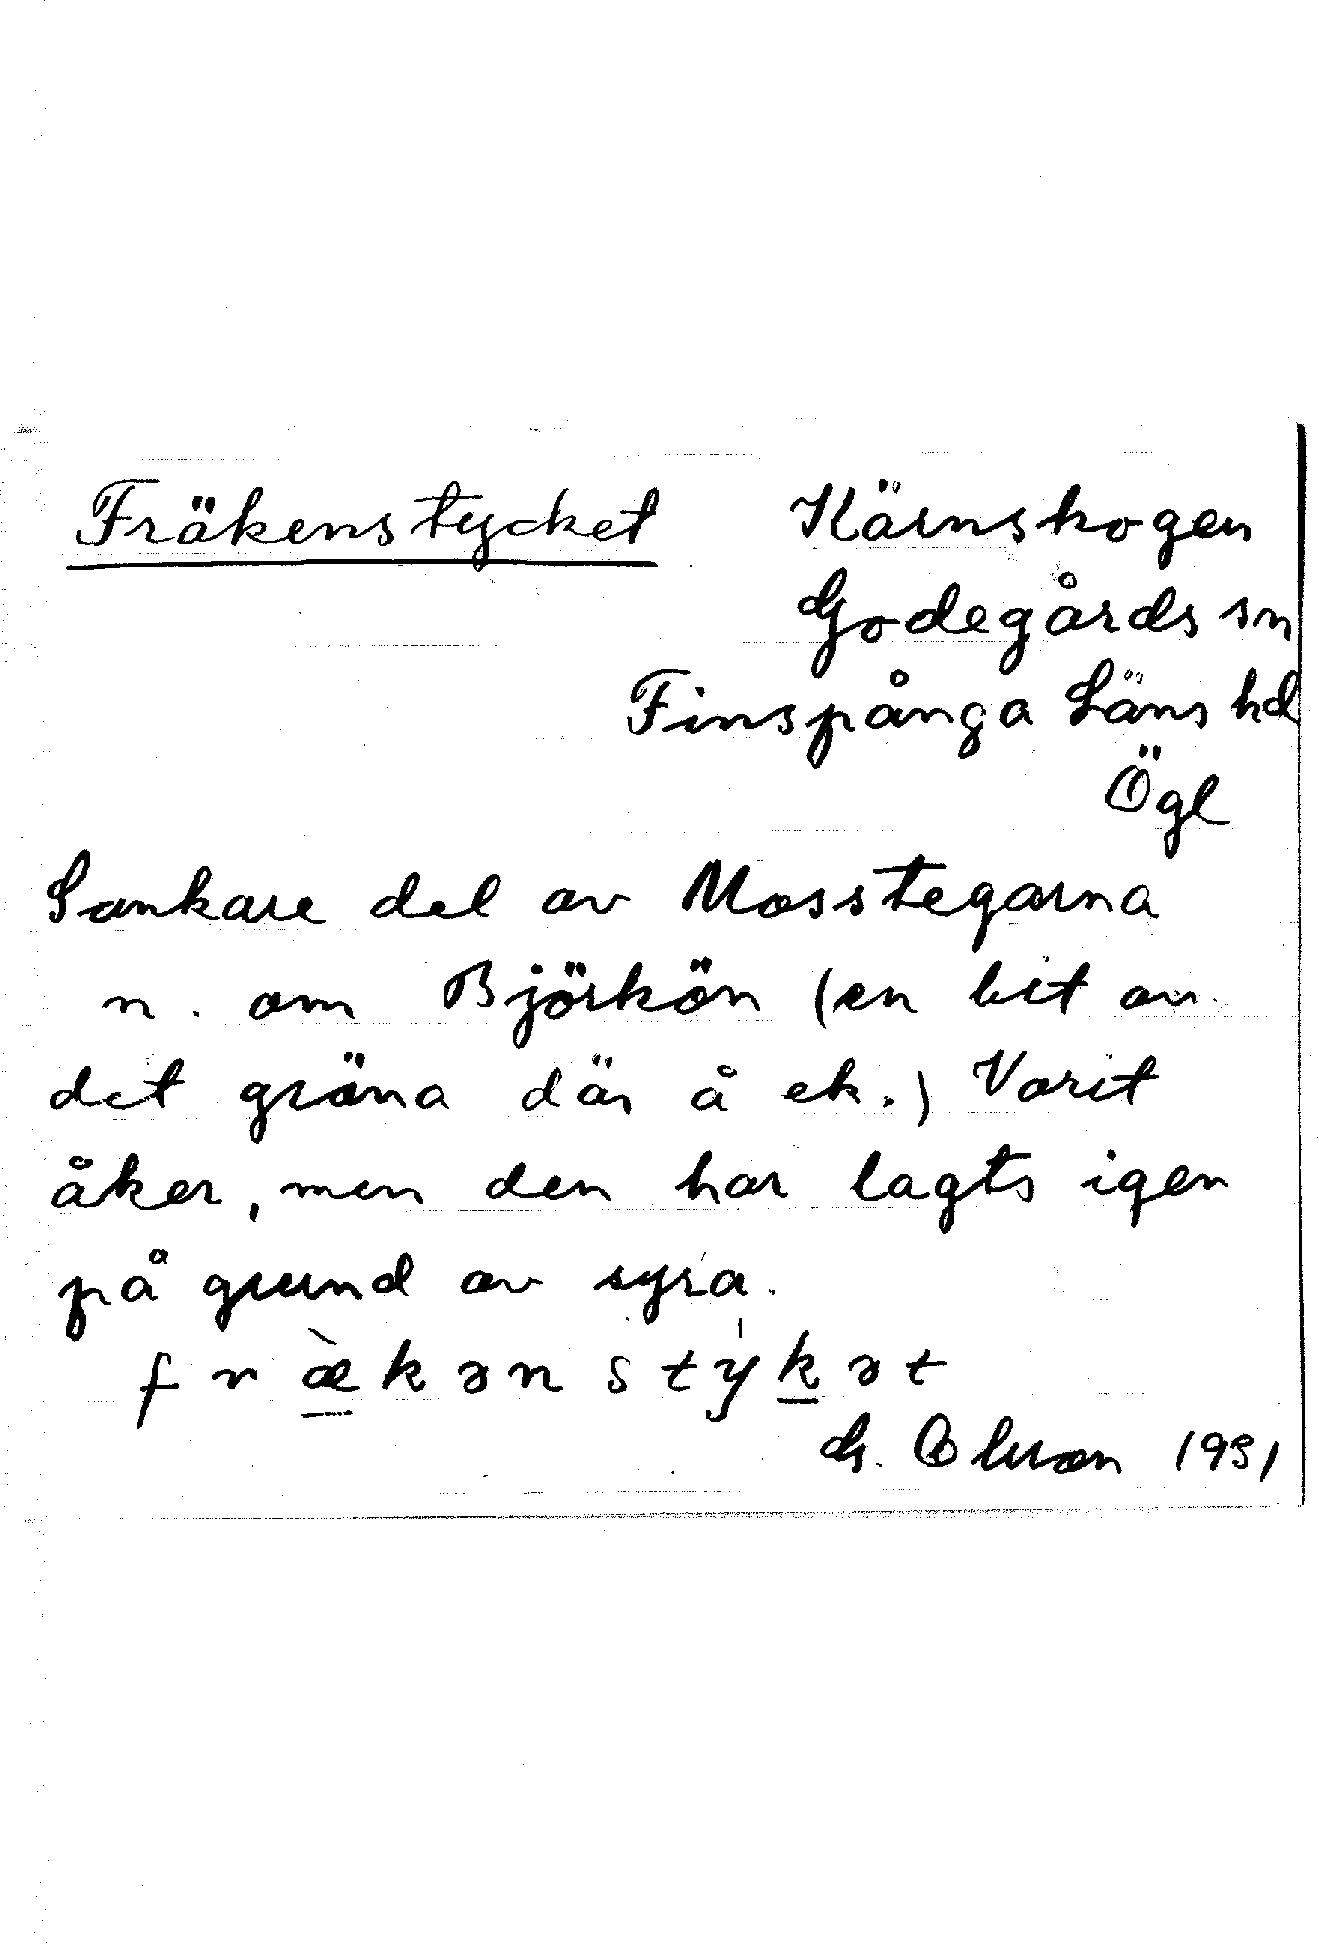 Fräkenstycket Kärnskogen
Godegårds sn
Finspånga Läns hd
Ögl
Sankare del av Mosstegarna
n. om Björkön (en bit av
det gröna där å ek.) Varit
åker, men den har lagts igen
på grund av syra.
f r æ̀ k ə n s t y̍ k ə t
G. Olsson 1991